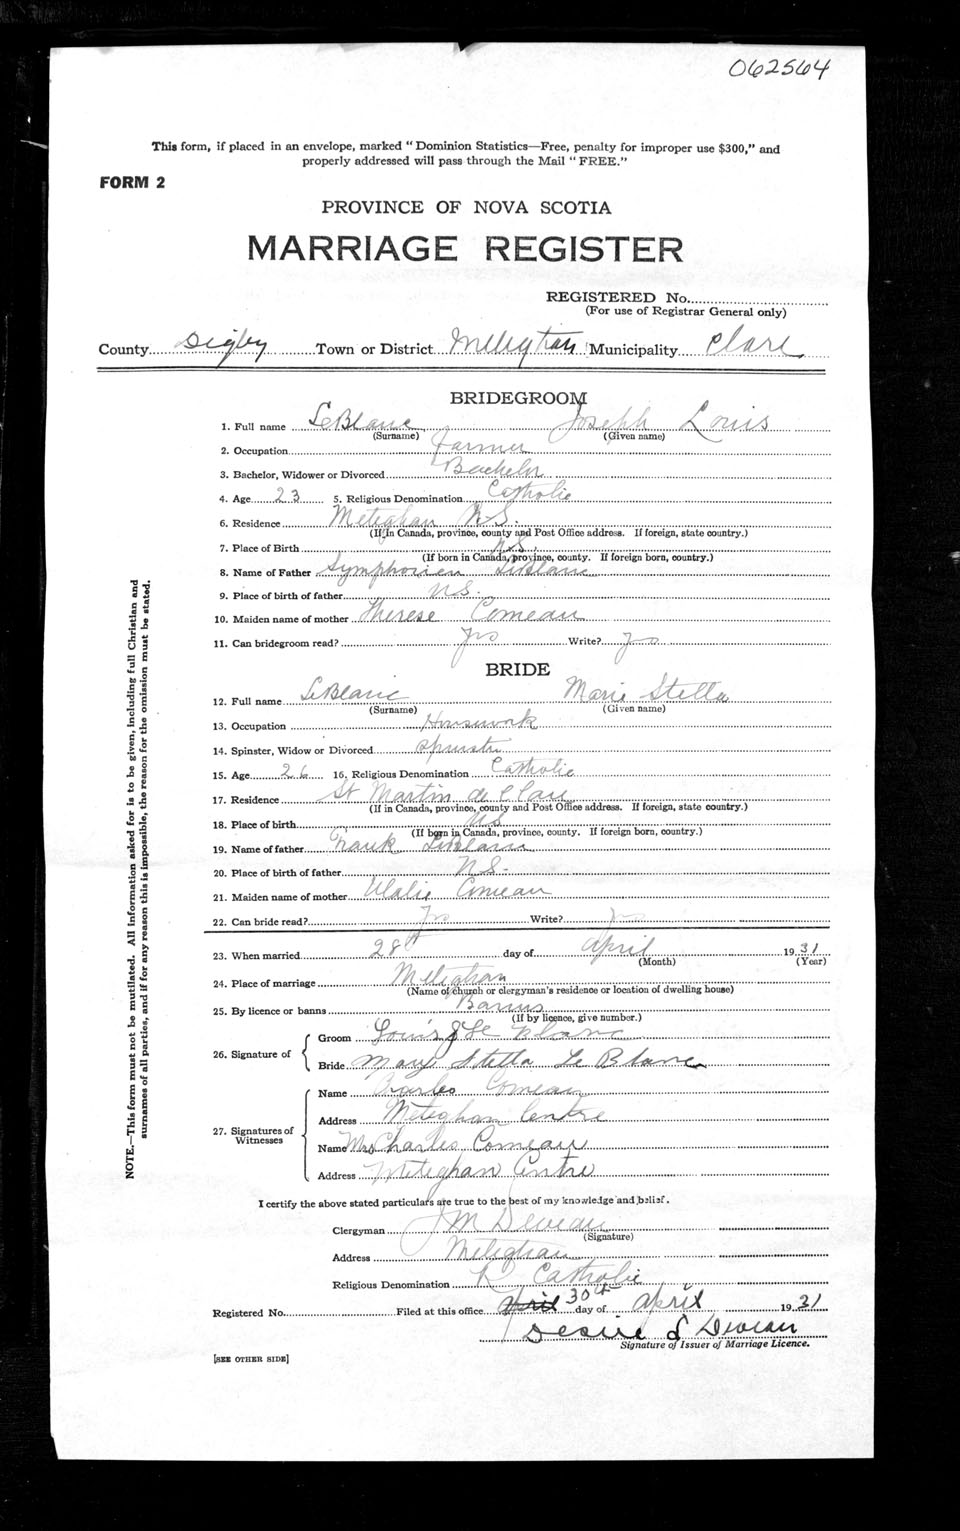 062564
This form, if placed in an envelope, marked "Dominion Statistics—Free, penalty for improper use $300," and
properly addressed will pass through the Mail "FREE."
FORM 2
PROVINCE OF NOVA SCOTIA
MARRIAGE REGISTER
REGISTERED No.
(For use of Registrar General only)
County Digby Town or District Meteghan Municipality Clare
BRIDEGROOM
1. Full name LeBlanc Joseph Louis
(Surname) (Given name)
2. Occupation Farmer
3. Bachelor, Widower or Divorced Bachelor
4. Age 23 5. Religious Denomination Catholic
6. Residence Meteghan N.S.
(If in Canada, province, county and Post Office address. If foreign, state country.)
7. Place of Birth N.S.
(If born in Canada, province, county. If foreign born, country.)
8. Name of Father Symphorien LeBlanc
9. Place of birth of father N.S.
10. Maiden name of mother Therese Comeau
11. Can bridegroom read? Yes Write? Yes
BRIDE
12. Full name LeBlanc Marie Stella
(Surname) (Given name)
13. Occupation Housework
14. Spinster, Widow or Divorced Spinster
15. Age 26 16. Religious Denomination Catholic
17. Residence St Martin de Clare
(If in Canada, province, county and Post Office address. If foreign, state country.)
18. Place of birth NS
(If born in Canada, province, county. If foreign born, country.)
19. Name of father Frank LeBlanc
20. Place of birth of father N.S.
21. Maiden name of mother Ulalie Comeau
22. Can bride read? Yes Write? Yes
23. When married 28th day of April 1931
(Month) (Year)
24. Place of marriage Meteghan
(Name of church or clergyman's residence or location of dwelling house)
25. By licence or banns Banns
(If by licence, give number.)
26. Signature of
Groom Louis J Le Blanc
Bride Mary Stella Le Blanc
27. Signatures of Witnesses
Name Charles Comeau
Address Meteghan Centre
Name Mrs Charles Comeau
Address Meteghan Centre
I certify the above stated particulars are true to the best of my knowledge and belief.
Clergyman J M Deveau
(Signature)
Address Meteghan
Religious Denomination R Catholic
Registered No. Filed at this office April 30th day of April 1931
Desire J Deveau
Signature of Issuer of Marriage Licence.
[SEE OTHER SIDE]
NOTE.—This form must not be mutilated. All information asked for is to be given, including full Christian and
surnames of all parties, and if for any reason this is impossible, the reason for the omission must be stated.